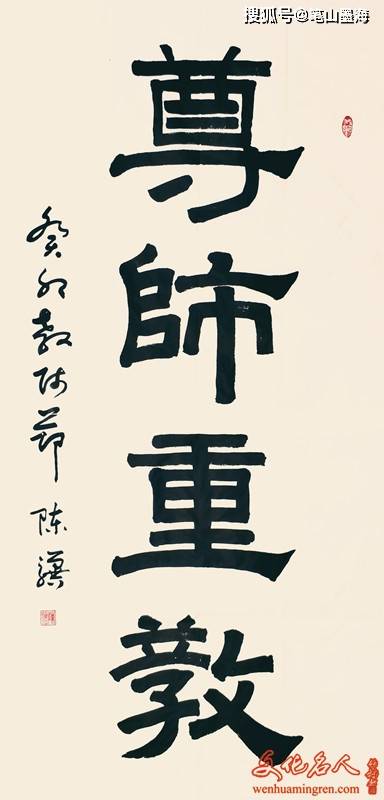 搜狐号@笔山墨海
尊師重教
癸卯教师节 陈
文化名人
wenhuamingren.com